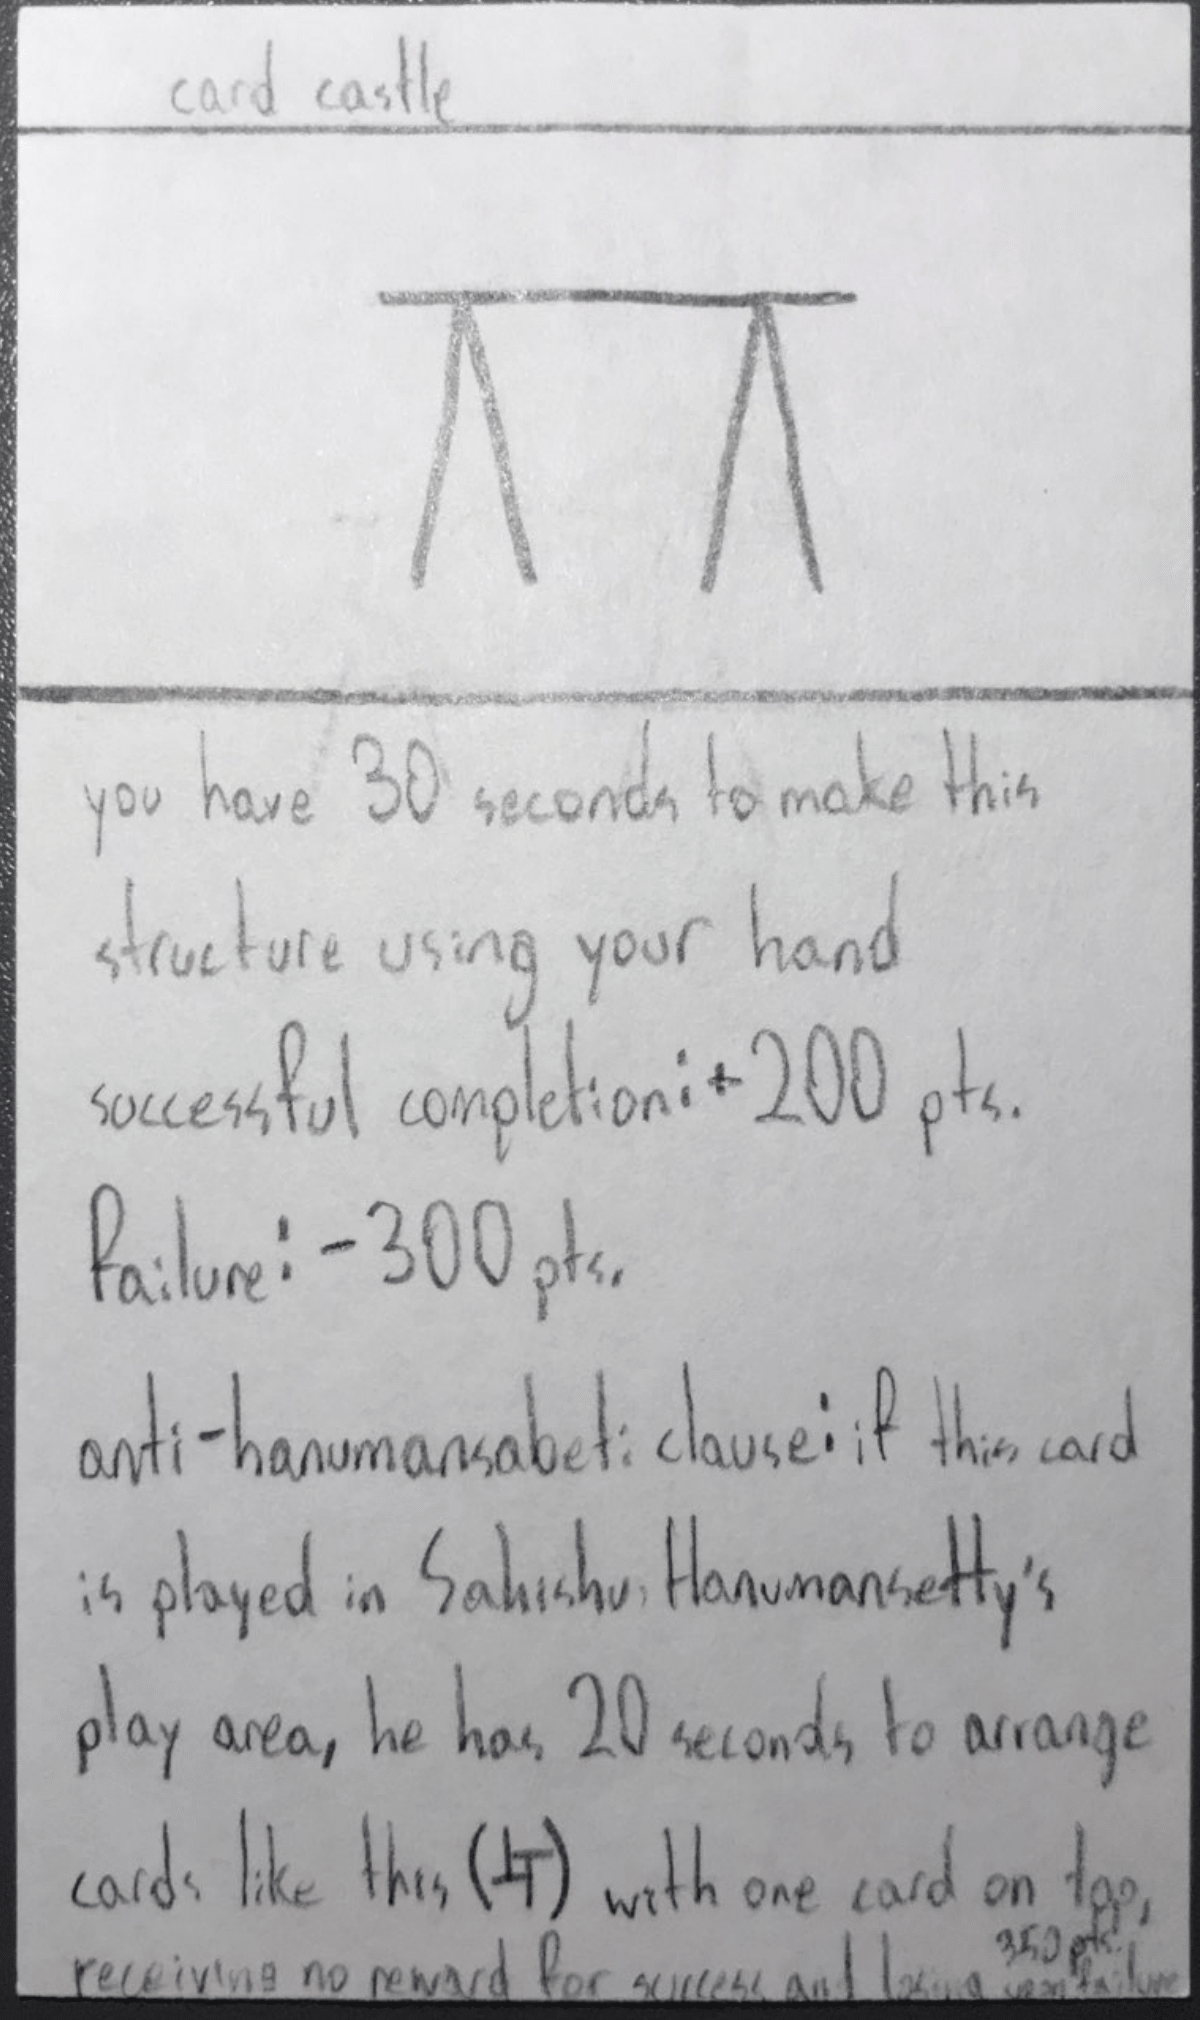 card castle
you have 30 seconds to make this
structure using your hand
successful completion: +200 pts.
failure: -300 pts.
anti-hanumansabet: clause: if this card
is played in Sahishu Hanumansetty's
play area, he has 20 seconds to arrange
cards like this () with one card on top,
350 pts.
receiving no reward for success and losing upon failure